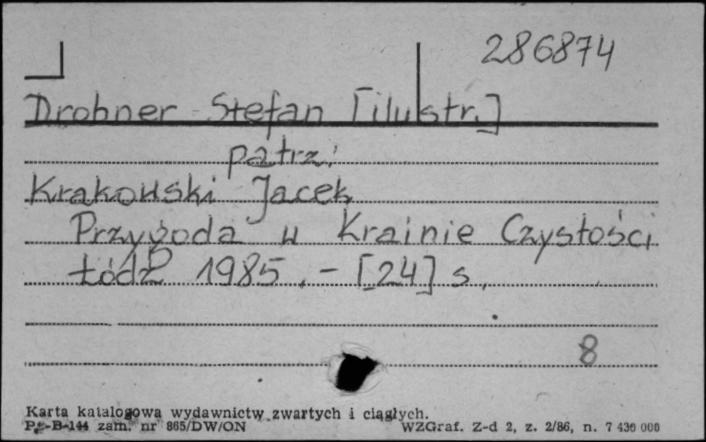 286874
Drobner Stefan [ilustr.]
patrz:
Krakowski Jacek
Przygoda w Krainie Czystości
Łódź 1985. - [24] s.
8
Karta katalogowa wydawnictw zwartych i ciągłych.
Pu-B-144 zam. nr 865/DW/ON WZGraf. Z-d 2, z. 2/86, n. 7 430 000